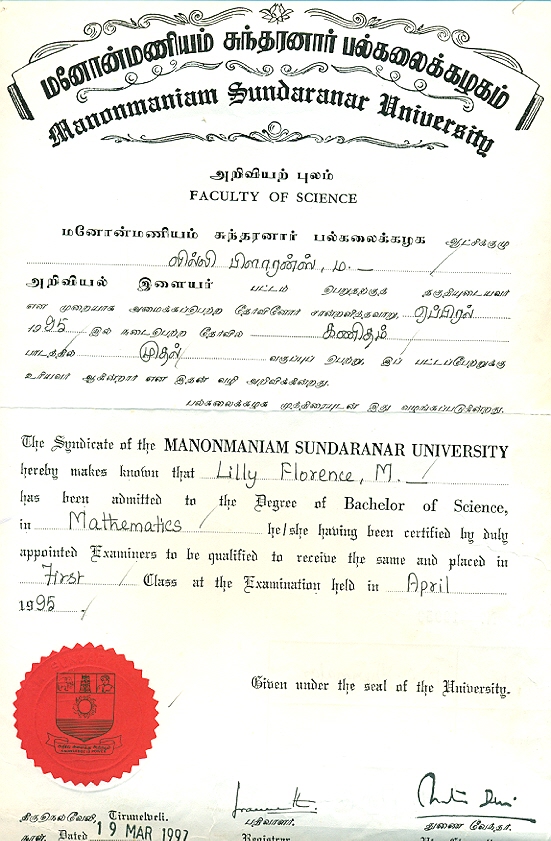 மனோன்மணியம் சுந்தரனார் பல்கலைக்கழகம்
Manonmaniam Sundaranar University
அறிவியற் புலம்
FACULTY OF SCIENCE
மனோன்மணியம் சுந்தரனார் பல்கலைக்கழக ஆட்சிக்குழு
லில்லி பிளாரன்ஸ், ம.
அறிவியல் இளையர் பட்டம் பெறுதற்குத் தகுதியுடையவர்
என முறையாக அமைக்கப்பெற்ற தேர்வினோர் சான்றளித்தவாறு, ஏப்பிரல்
1995 இல் நடைபெற்ற தேர்வில் கணிதம்
பாடத்தில் முதல் வகுப்புப் பெற்று, இப் பட்டப்பேற்றுக்கு
உரியவர் ஆகின்றார் என இதன் வழி அறிவிக்கின்றது.
பல்கலைக்கழக முத்திரையுடன் இது வழங்கப்படுகின்றது.
The Syndicate of the MANONMANIAM SUNDARANAR UNIVERSITY
hereby makes known that Lilly Florence, M.
has been admitted to the Degree of Bachelor of Science,
in Mathematics he/she having been certified by duly
appointed Examiners to be qualified to receive the same and placed in
First Class at the Examination held in April
1995.
Given under the seal of the University.
திருநெல்வேலி, Tirunelveli.
நாள். Dated 19 MAR 1997
பதிவாளர்.
Registrar
துணை வேந்தர்.